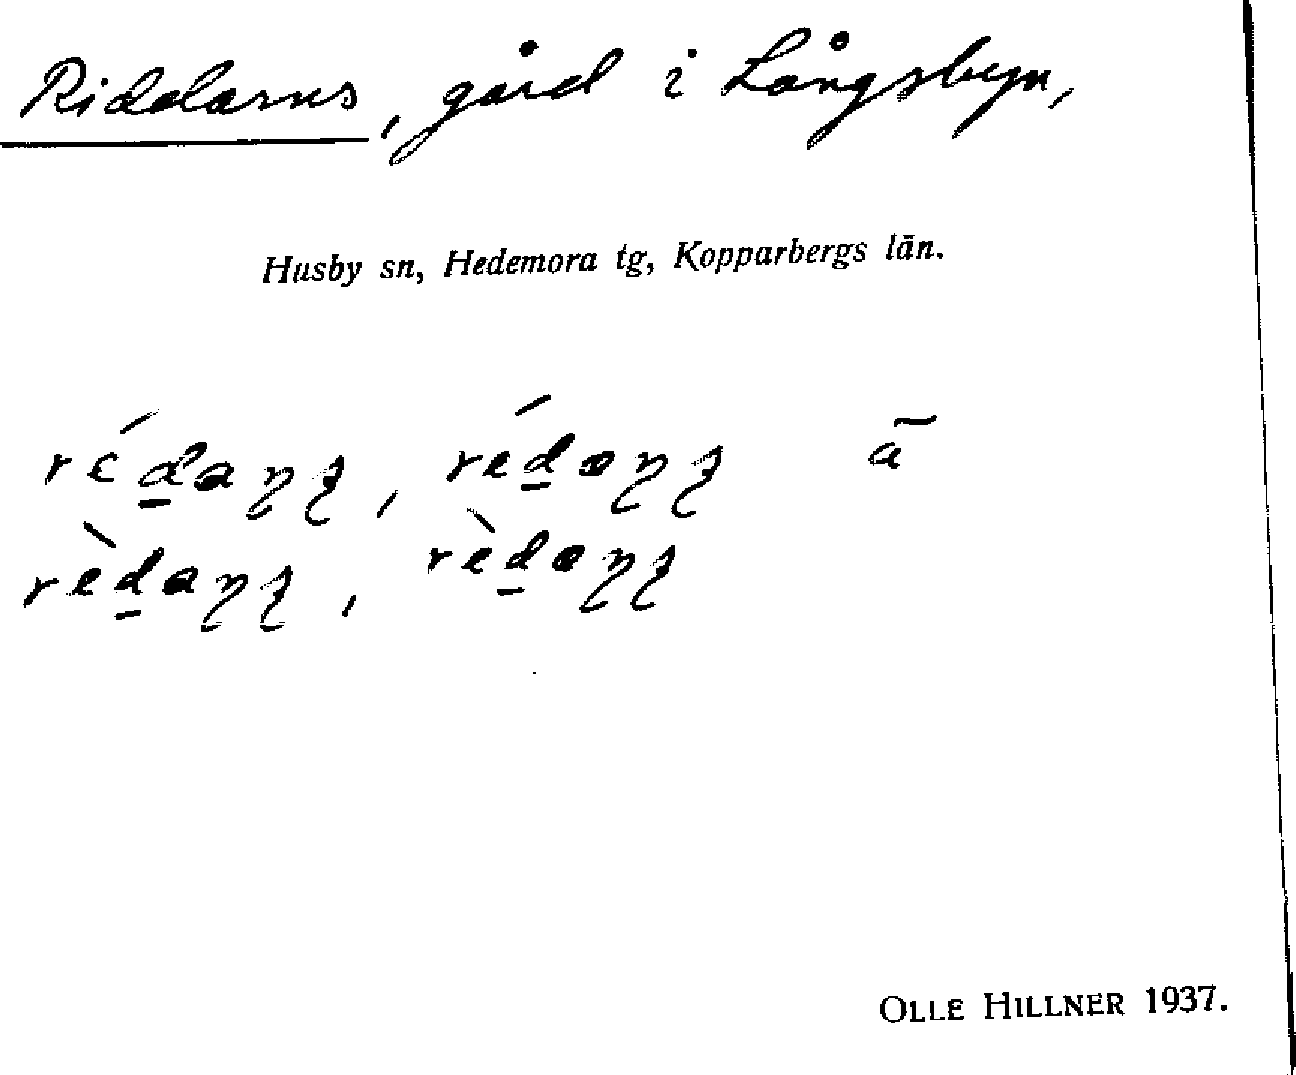 Riddarns, gård i Långsbyn,
Husby sn, Hedemora tg, Kopparbergs län.
rédaɳʂ, rédɑɳʂ ã
rèdaɳʂ, rèdɑɳʂ
OLLE HILLNER 1937.